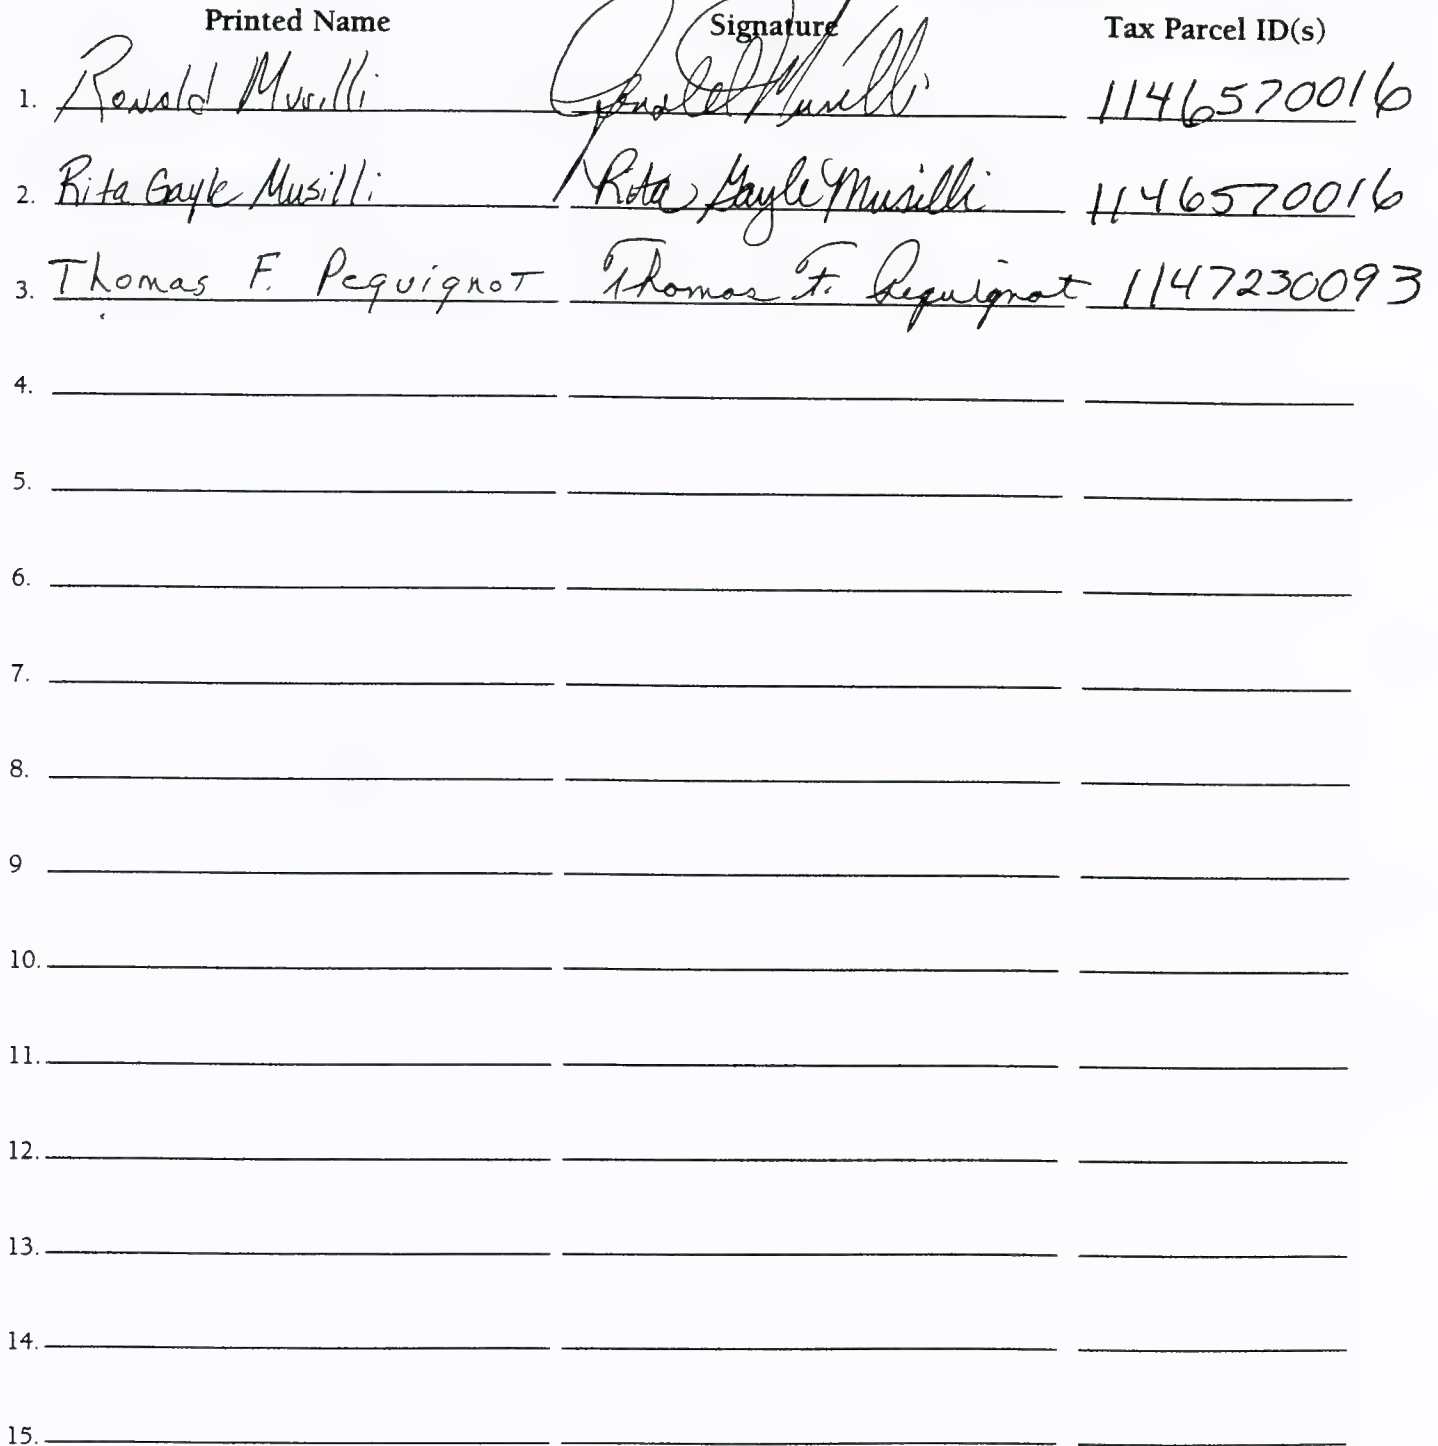 Printed Name Signature Tax Parcel ID(s)
1. Ronald Musilli Ronald Musilli 1146570016
2. Rita Gayle Musilli Rita Gayle Musilli 1146570016
3. Thomas F. Pequignot Thomas F. Pequignot 1147230093
4.
5.
6.
7.
8.
9
10.
11.
12.
13.
14.
15.